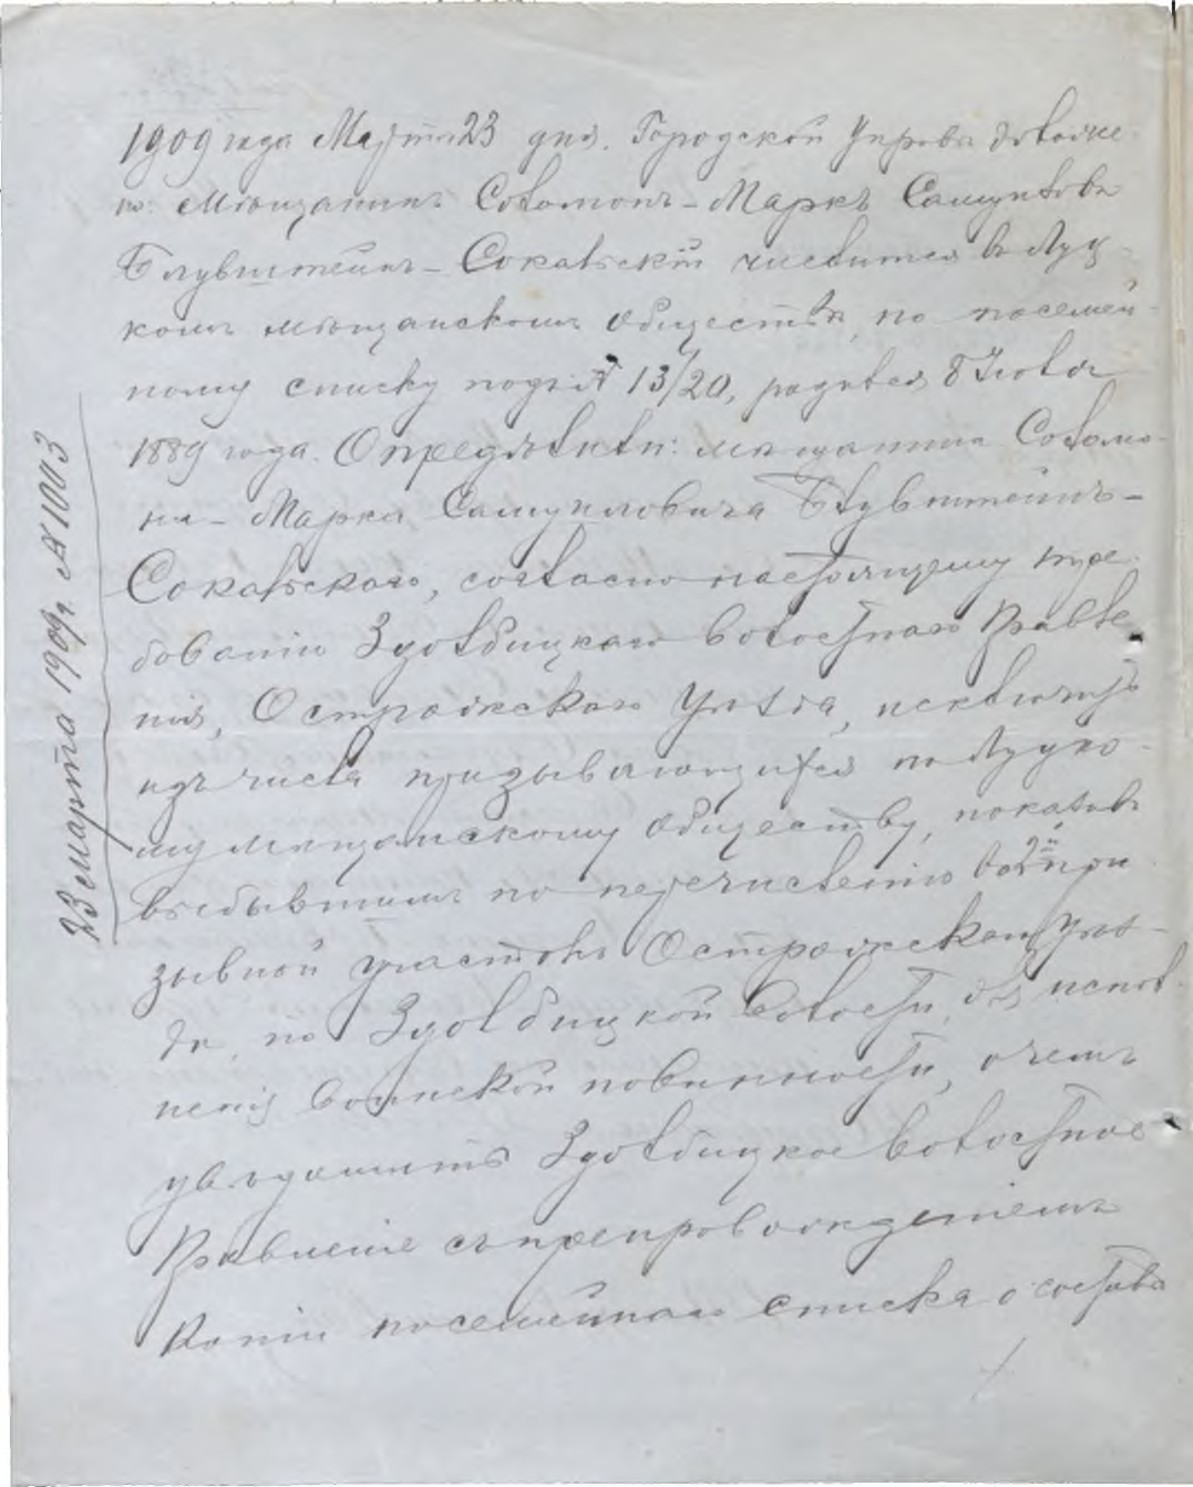 1909 года Марта 23 дня. Городской Управѣ доложе-
но: мѣщанинъ Соломонъ-Маркъ Самуиловъ
Блувштейнъ-Сокальскій числится въ Луц-
комъ мѣщанскомъ обществѣ, по посемей-
ному списку подъ № 13/20, родился 8 Іюля
1889 года. Опредѣлили: мѣщанина Соломо-
на-Марка Самуиловича Блувштейнъ-
Сокальскаго, согласно настоящему тре-
бованію Здолбицкаго волостнаго Правле-
нія, Острожскаго Уѣзда, исключить
изъ числа призывающихся по Луцко-
му мѣщанскому обществу, показавъ
выбывшимъ по перечисленію во 2й при-
зывной участокъ Острожскаго Уѣз-
да, по Здолбицкой волости, для испол-
ненія воинской повинности, о чемъ
увѣдомить Здолбицкое волостное
Правленіе съ препровожденіемъ
Копіи посемейнаго списка о составѣ
23 Марта 1909 г. № 1003